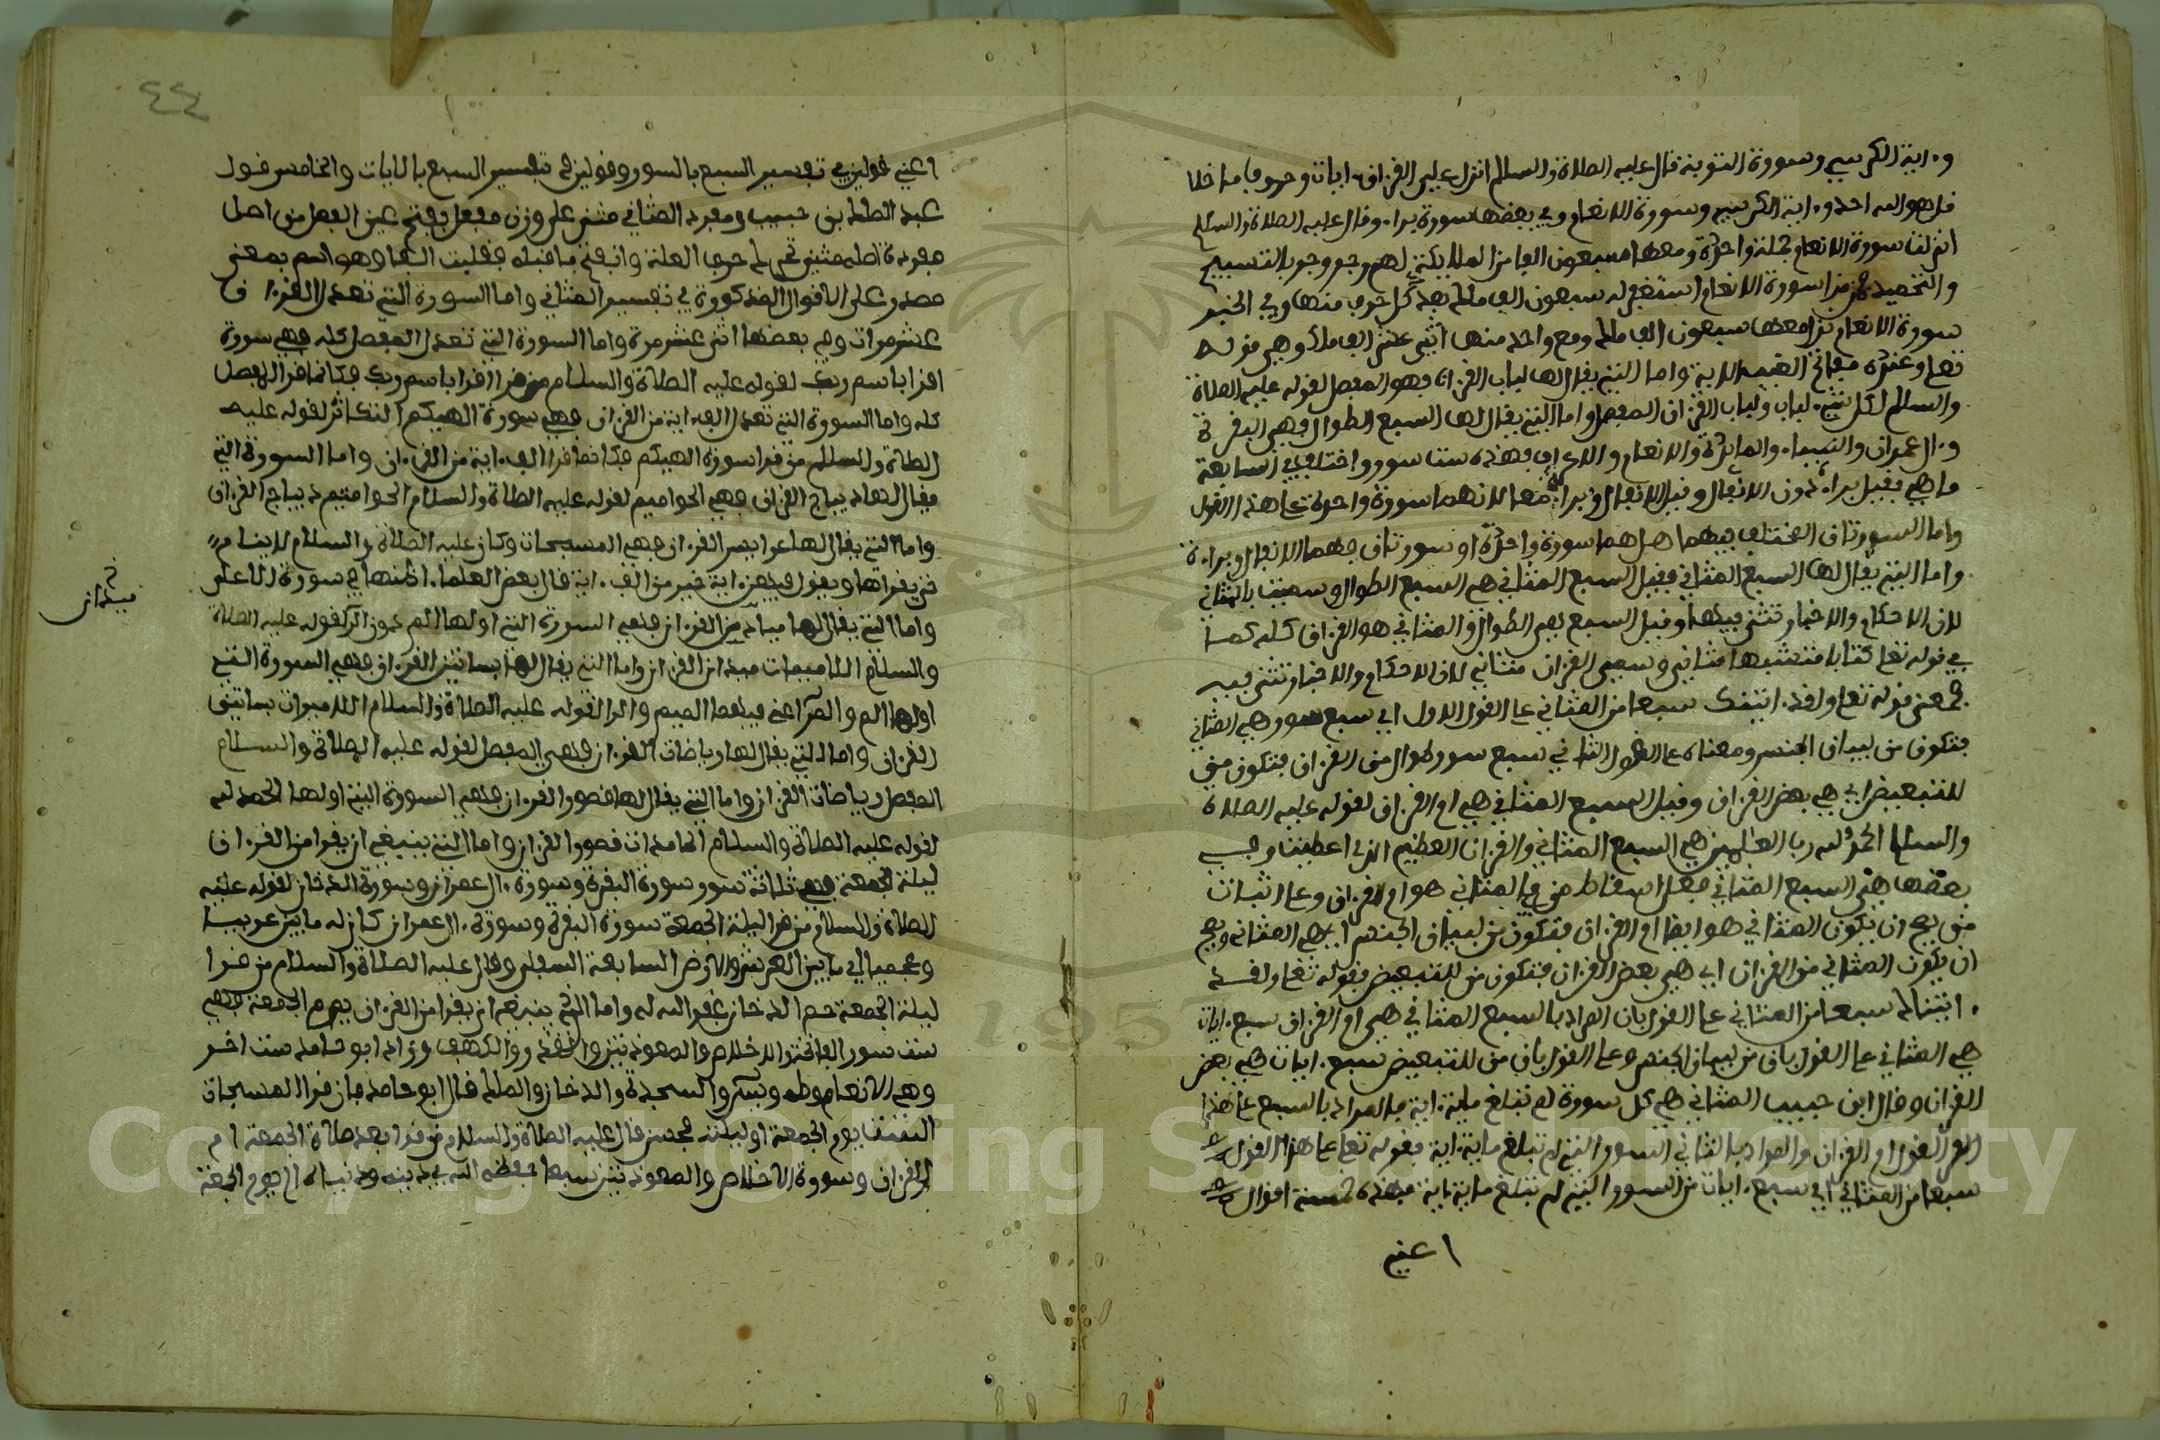 واية الكرسي وسورة التوبة قال عليه الصلاة والسلام انزل علي القران اية اية وحروفا ما خلا
قل هو الله احد واية الكرسي وسورة الانعام وفي بعضها سورة براءة وقال عليه الصلاة والسلام
انزلت سورة الانعام جملة واحدة ومعها سبعون الفا من الملايكة لهم وجو وجو بالتسبيح
والتحميد فمن قرا سورة الانعام استغفر له سبعون الف ملك بعد كل حرف منها وفي الخبر
سورة الانعام نزل معها سبعون الف ملك ومع واحد منها اثنى عشر الف ملك وهي قوله
تعلى وعنده مفاتح الغيب الاية واما التي يقال لها لباب القران فهو المفصل لقوله عليه الصلاة
والسلام لكل شيء لباب ولباب القران المفصل واما التي يقال لها السبع الطوال فهي البقرة
وال عمران والنساء والمايدة والانعام والاعراف فهذه ست سور واختلف في السابعة
ما هي فقيل براءة دون الانفال وقيل الانفال وبراءة معا لانهما سورة واحدة على هذا القول
واما السورتان المختلف فيهما هل هما سورة واحدة او سورتان فهما الانفال وبراءة
واما التي يقال لها السبع المثاني فقيل السبع المثاني هي السبع الطوال وسميت بالمثاني
لان الاحكام والاخبار تثنى فيها وقيل السبع هي الطوال والمثاني هو القران كله كما
في قوله تعلى كتابا متشبها مثاني وسمي القران مثاني لان الاحكام والاخبار تثنى فيه
فمعنى قوله تعلى ولقد اتينك سبعا من المثاني على القول الاول اي سبع سور وهي المثاني
فتكون من لبيان الجنس ومعناه على القول الثاني سبع سور طوال من القران فتكون من
للتبعيض اي هي بعض القران وقيل السبع المثاني هي ام القران لقوله عليه الصلاة
والسلام الحمد لله رب العلمين هي السبع المثاني والقران العظيم الذي اعطيت وفي
بعضها هي السبع المثاني فعلى اسقاط من في المثاني هو ام القران وعلى اثبات
من يصح ان يكون المثاني هو ايضا ام القران فتكون من لبيان الجنس اي هي المثاني ويصح
ان يكون المثاني من القران اي هي بعض القران فتكون من للتبعيض فقوله تعلى ولقد
اتيناك سبعا من المثاني على القول بان المراد بالسبع المثاني هي ام القران سبع ايات
هي المثاني على القول بان من لبيان الجنس وعلى القول بان من للتبعيض سبع ايات هي بعض
القران وقال ابن حبيب المثاني هي كل سورة لم تبلغ ماية اية فالمراد بالسبع على هذا
القول ام القران والمراد بالمثاني السور التي لم تبلغ ماية اية فقوله تعلى على هذا القول
سبعا من المثاني اي سبع ايات من السور التي لم تبلغ ماية اية فهذه خمسة اقوال
اعني
٤٤
اعني قولين في تفسير السبع بالسور وقولين في تفسير السبع بالايات والخامس قول
عبد الملك بن حبيب ومفرد المثاني مثنى على وزن مفعل بفتح عين الفعل من اصل
مفرده اصله مثني تحرك حرف العلة وانفتح ما قبله فقلبت الفا وهو اسم بمعنى
مصدر على الاقوال المذكورة في تفسير المثاني واما السورة التي تعدل القران
عشر مرات وفي بعضها اثنى عشر مرة واما السورة التي تعدل المفصل كله فهي سورة
اقرا باسم ربك لقوله عليه الصلاة والسلام من قرا اقرا باسم ربك فكانما قرا المفصل
كله واما السورة التي تعدل الف اية من القران فهي سورة الهيكم التكاثر لقوله عليه
الصلاة والسلام من قرا سورة الهيكم فكانما قرا الف اية من القران واما السورة التي
يقال لها ديباج القران فهي الحواميم لقوله عليه الصلاة والسلام الحواميم ديباج القران
واما التي يقال لها عرايس القران فهي المسبحات وكان عليه الصلاة والسلام لا ينام
حتى يقراها ويقول فيهن اية خير من الف اية قال بعض العلماء اظنها في سورة الاعلى
واما التي يقال لها ميادين القران فهي السورة التي اولها الم دون الر لقوله عليه الصلاة
والسلام اللاميمات ميدان القران واما التي يقال لها بساتين القران فهي السورة التي
اولها الم والمر اعني فيها الميم والرا لقوله عليه الصلاة والسلام اللاميرات بساتين
القران واما التي يقال لها رياضات القران فهي المفصل لقوله عليه الصلاة والسلام
المفصل رياضات القران واما التي يقال لها قصور القران فهي السورة التي اولها الحمد لله
لقوله عليه الصلاة والسلام الحامدات قصور القران واما التي ينبغي ان يقرا من القران
ليلة الجمعة فهي ثلاثة سور سورة البقرة وسورة ال عمران وسورة الدخان لقوله عليه
الصلاة والسلام من قرا ليلة الجمعة سورة البقرة وسورة ال عمران كان له ما بين عريبا
وعجيبا الى ما بين العرش والارض السابعة السفلى وقال عليه الصلاة والسلام من قرا
ليلة الجمعة حم الدخان غفر الله له واما التي ينبغي ان يقرا من القران يوم الجمعة فهي
ست سور الفاتحة والاخلاص والمعوذتين والكهف وزاد ابو حامد ست اخر
وهي الانعام وطه ويس والسجدة والدخان والملك قال ابو حامد فان قرا المسبحات
الست يوم الجمعة او ليلته فحسن قال عليه الصلاة والسلام من قرا بعد صلاة الجمعة ام
القران وسورة الاخلاص والمعوذتين سبعا حفظه الله في دينه ودنياه الى يوم الجمعة
ميدان